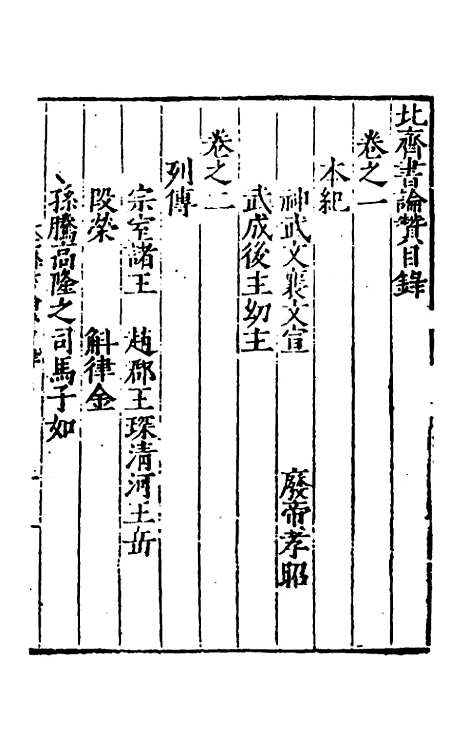 北齊書論贊目錄
卷之一
本紀
神武文襄文宣　廢帝孝昭
武成後主幼主
卷之二
列傳
宗室諸王　趙郡王琛清河王岳
段榮　斛律金
孫騰高隆之司馬子如